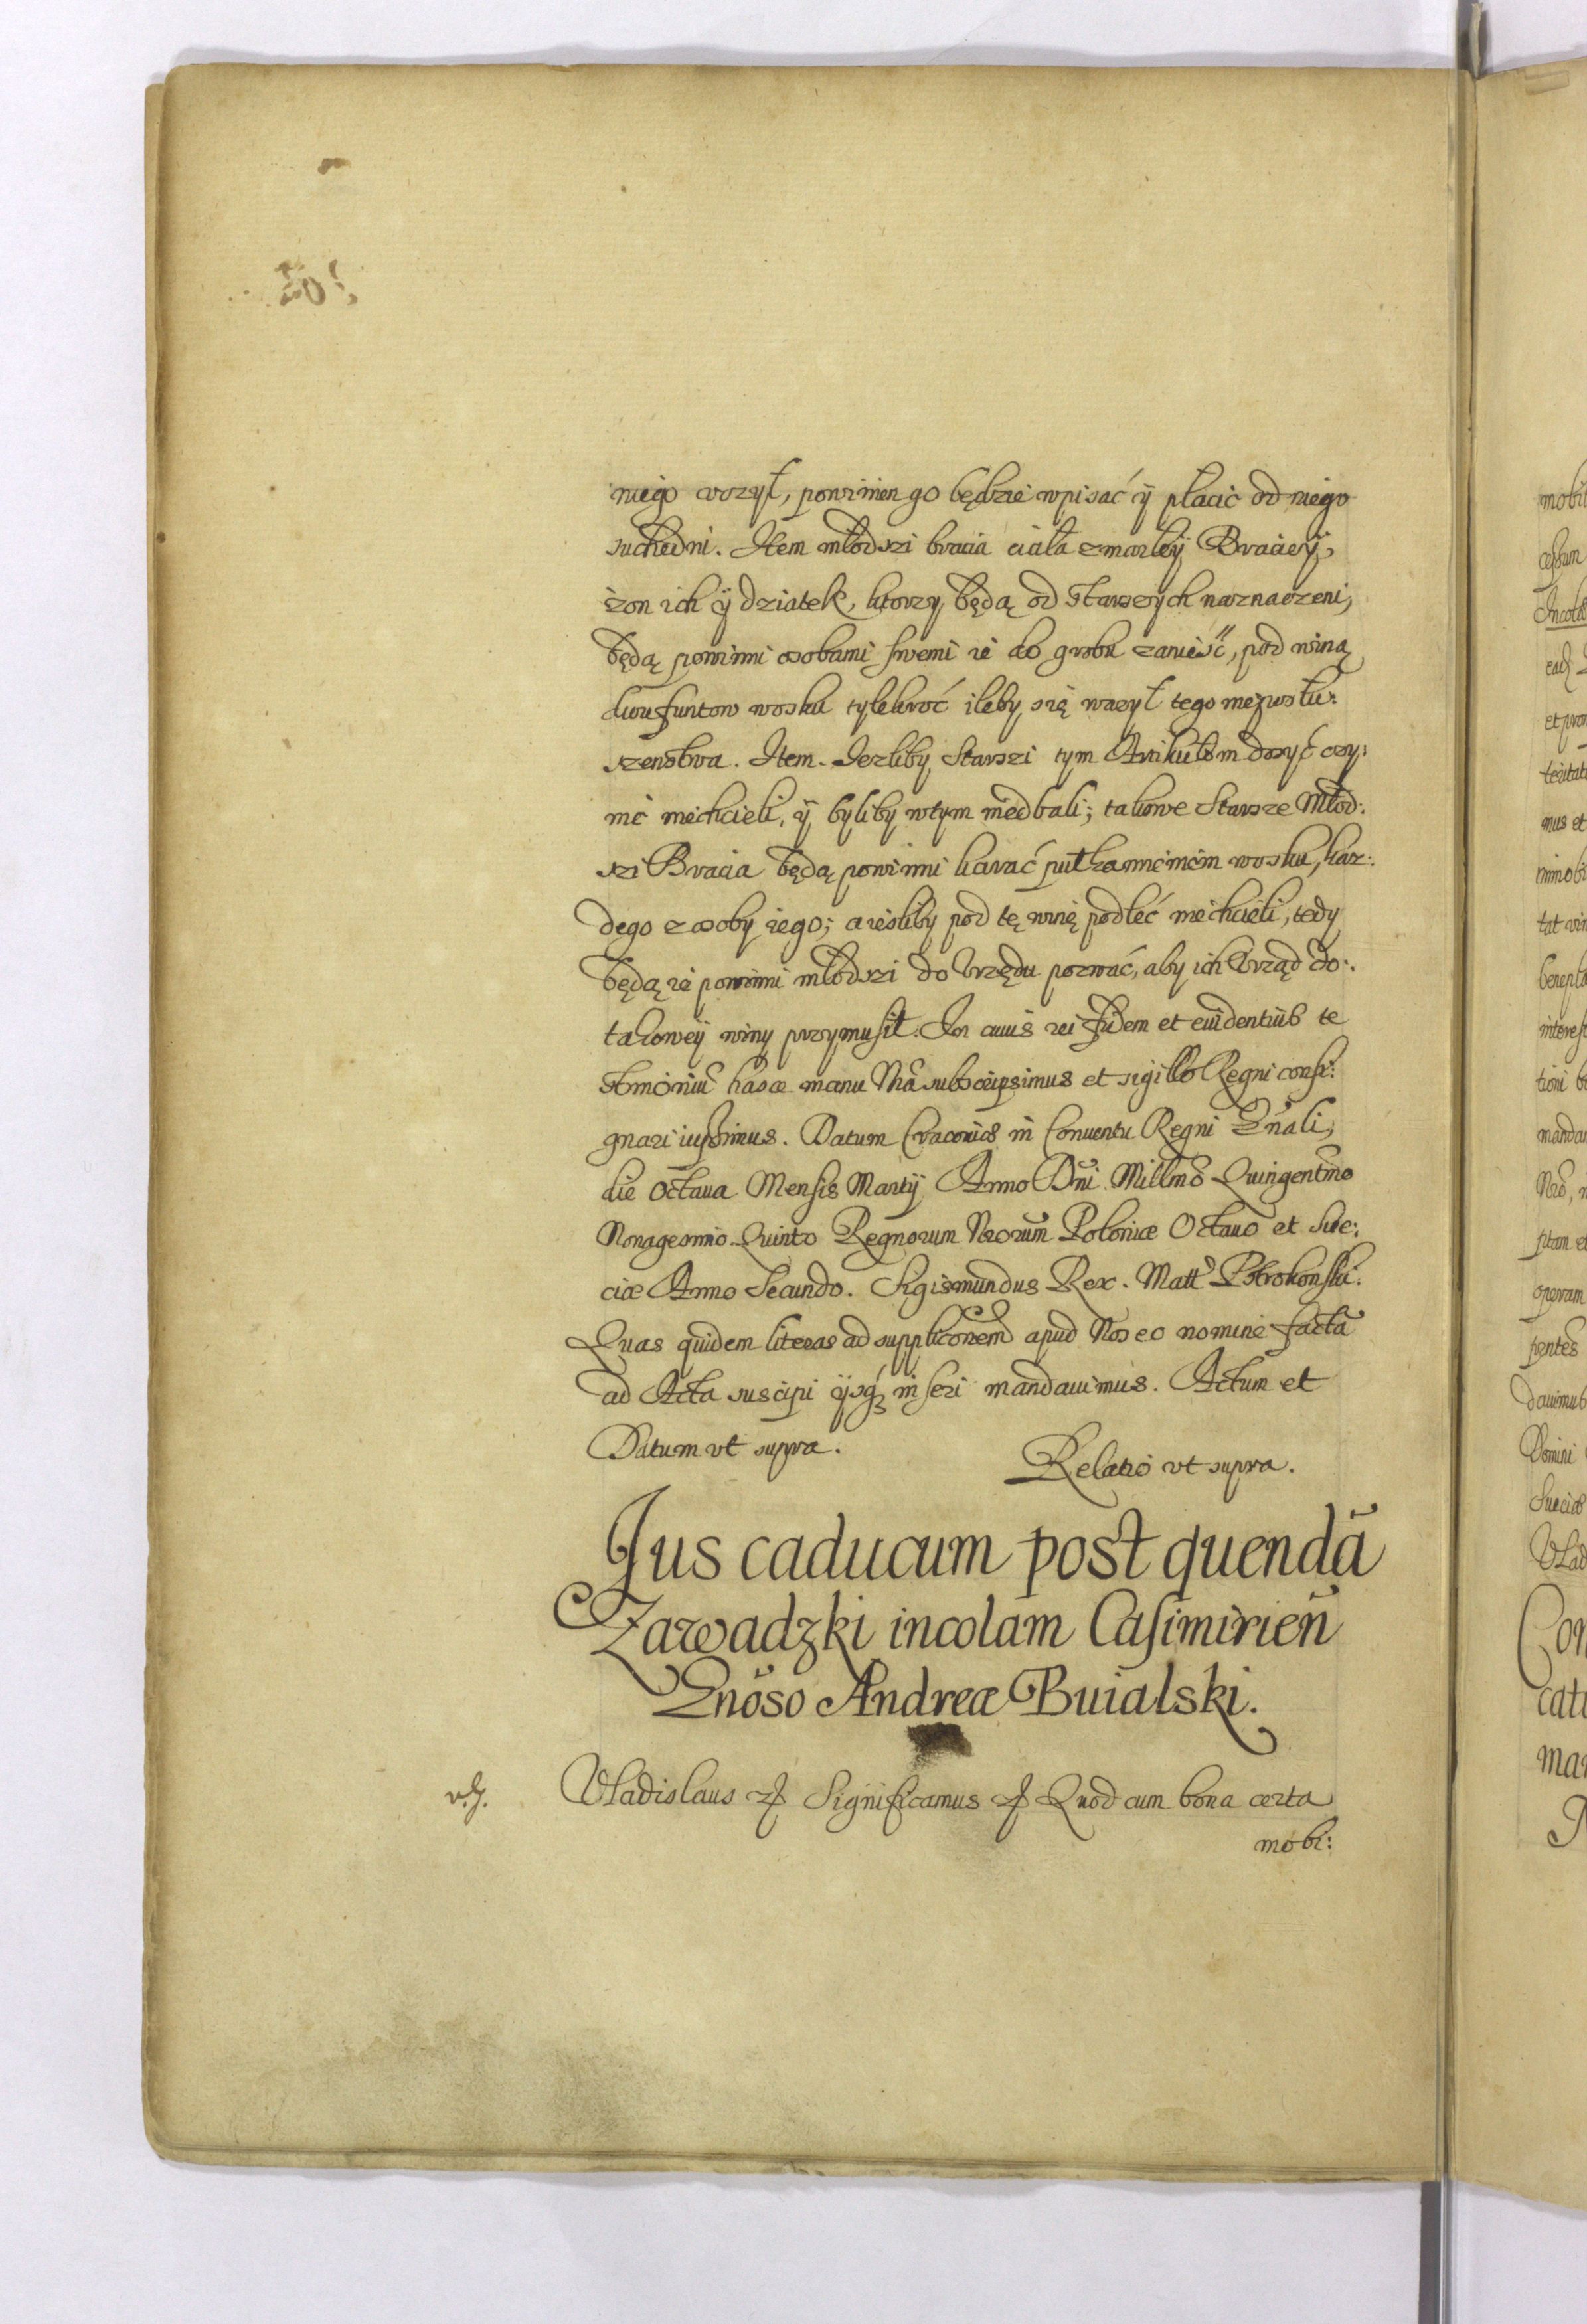 niego uczył, powinien go będzie wpisać ÿ płacić od niego
suchedni. Item młodszi bracia ciała zmarłeÿ Bracieÿ,
żon ich ÿ dziatek, ktorzy będą od starszych naznaczeni,
będą powinni osobami swemi ie do grobu zanieść, pod winą
dwu funtow wosku tylekroć ileby się wazył tego niepusłu:
szenstwa. Item. Iezliby Starszi tym Artikułom dosyć czy:
nić niechcieli, ÿ byliby wtym niedbali; takowe Starsze Młod:
szi Bracia będą powinni karać pułkamieniem wosku, kaz:
dego z osoby iego; a iesliby pod tę winę podleć niechcieli, tedy
będą ie powinni młodszi do Vrzędu pozwać, aby ich Vrząd do:
takoweÿ winy przymusił. In cuius rei fidem et euidentius te
stimoniũ hasce manu Nrã subscripsimus et sigillo Regni consi:
gnari iussimus. Datum Cracouiæ in Conuentu Regni Gñali,
die Octaua Mensis Martÿ Anno Dñi Millmõ Quingentmõ
Nonagesimo Quinto Regnorum Nrorum Poloniæ Octauo et Sue:
ciæ Anno Secundo. Sigismundus Rex. Matt: Pstrokonski.
Quas quidem literas ad supplicõnem apud Nos eo nomine factã
ad Acta suscipi ÿsq́ꝫ inseri mandauimus. Actum et
Datum vt supra.
Relatio vt supra.
Jus caducum post quendã
Zawadzki incolam Casimirieñ
Gnõso Andreæ Buialski.
Vladislaus ꝛc Significamus ꝛc Quod cum bona certa
mobi: